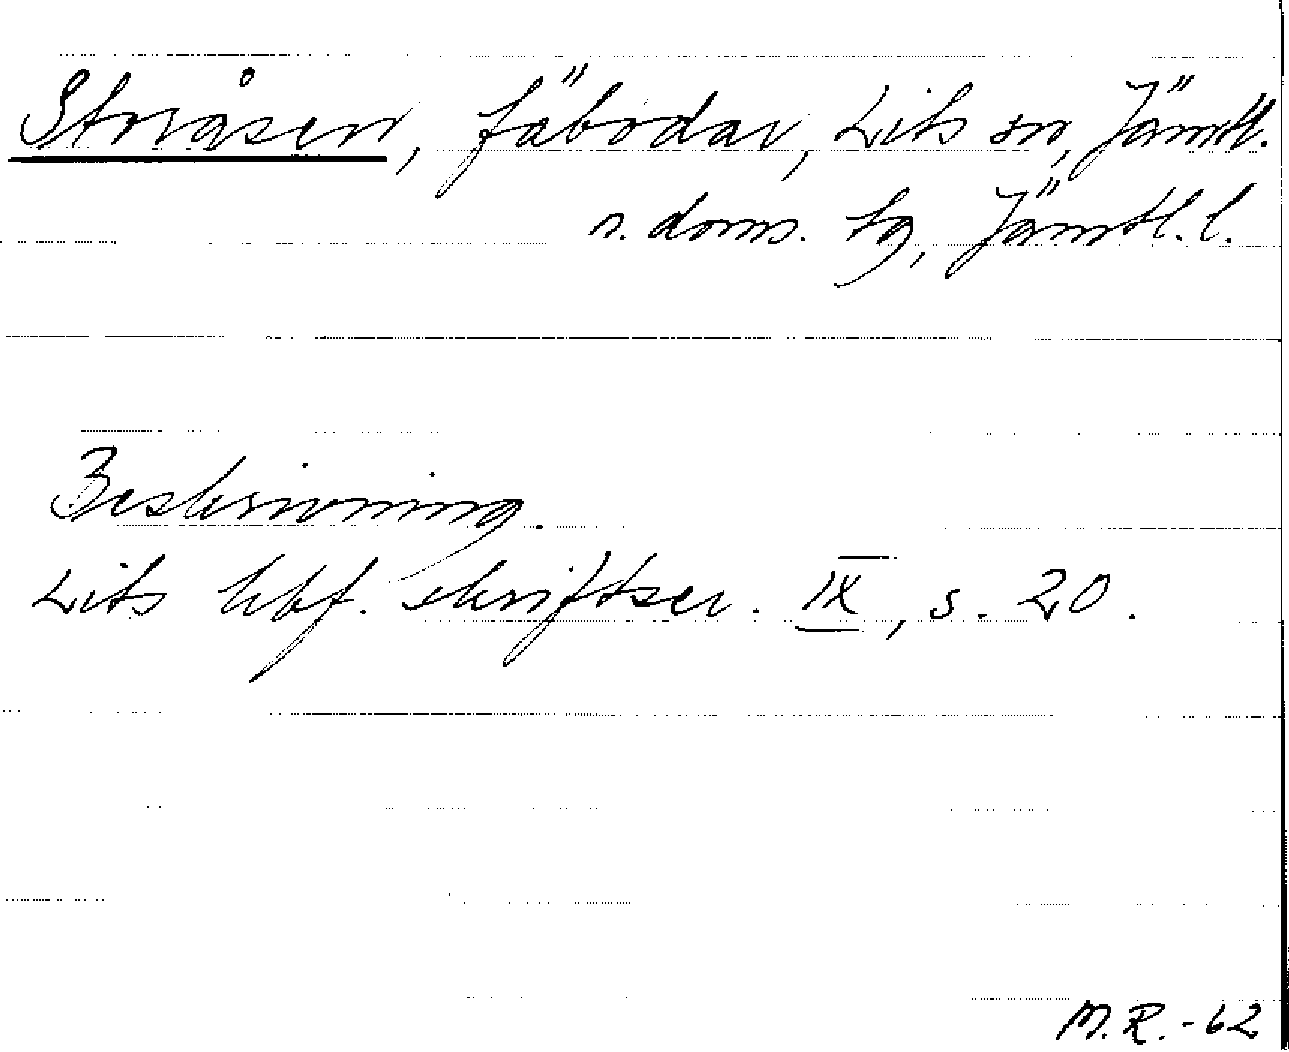 Storåsen, fäbodar, Lits sn, Jämtl.
n. doms. tg, Jämtl. l.
Beskrivning.
Lits hbf. skriftser. IX, s. 20.
M.R. -62